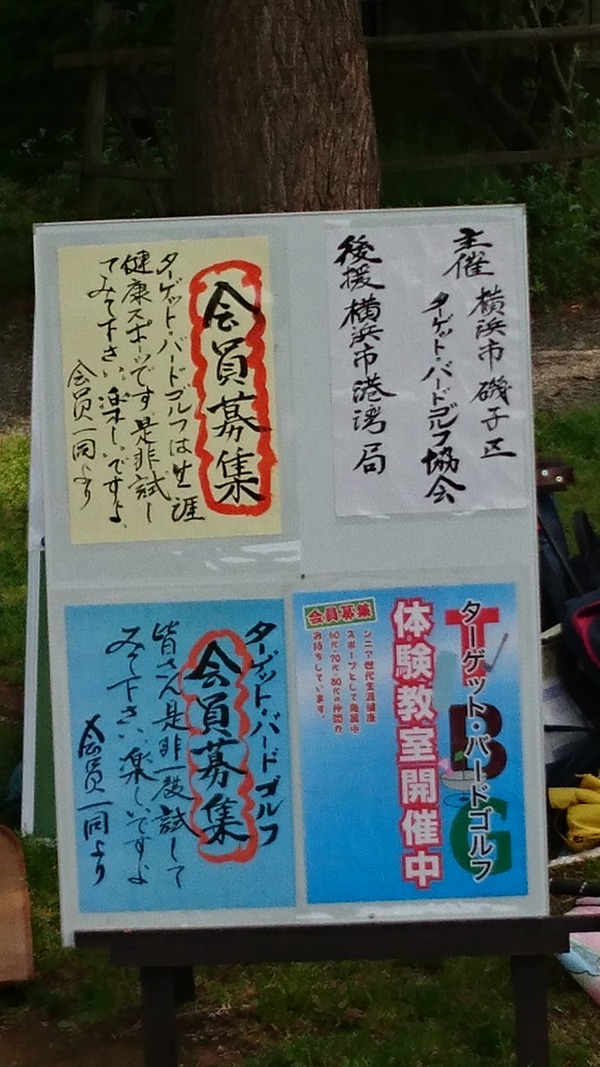 主催 横浜市磯子区
ターゲット・バードゴルフ協会
後援 横浜市港湾局
会員募集
ターゲット・バードゴルフは生涯
健康スポーツです。是非試し
てみて下さい。楽しいですよ。
会員一同より
ターゲット・バードゴルフ
会員募集
皆さん是非一度試して
みて下さい。楽しいですよ
会員一同より
TBG
ターゲット・バードゴルフ
体験教室開催中
会員募集
シニア世代生涯健康
スポーツとして発展中
60代・70代・80代の仲間が
お待ちしています。